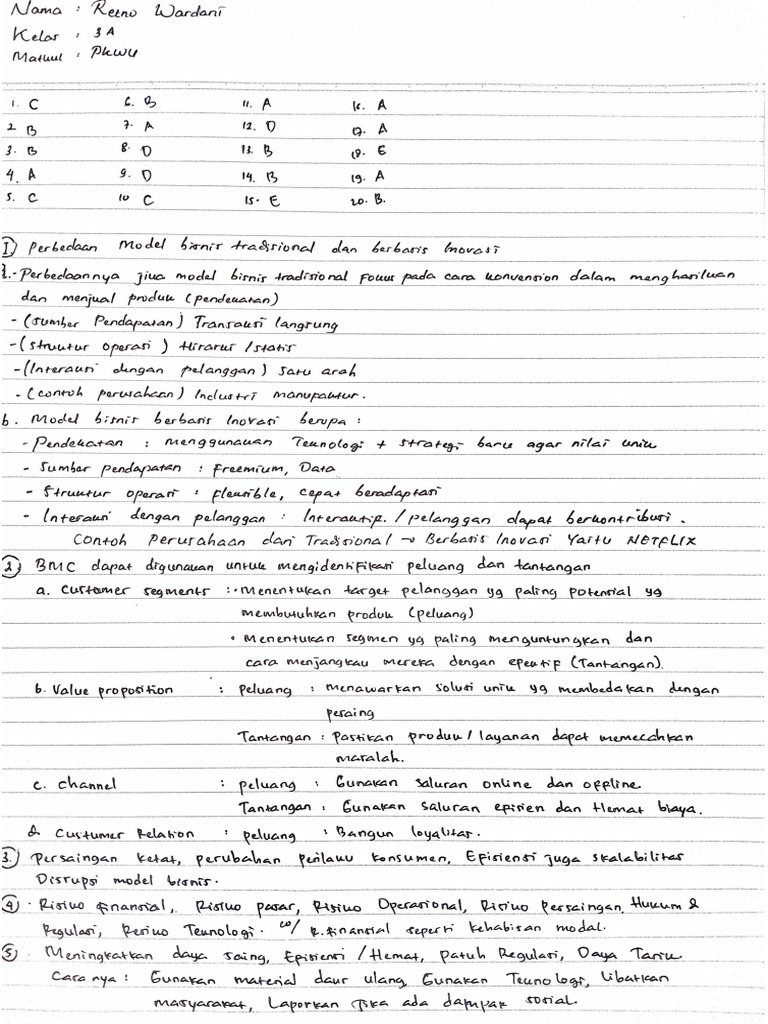 Nama : Retno Wardani
Kelas : 3A
Matkul : PKWU
1. C 6. B 11. A 16. A
2 B 7. A 12. D 17. A
3. B 8. D 13. B 18. E
4. A 9. D 14. B 19. A
5. C 10 C 15. E 20. B.
1) Perbedaan Model bisnis tradisional dan berbasis Inovasi
1.- Perbedaannya jika model bisnis tradisional fokus pada cara konvension dalam menghasilkan
dan menjual produk (pendekatan)
- (Sumber Pendapatan) Transaksi langsung
- (struktur operasi ) Hirarki / statis
- (Interaksi dengan pelanggan) satu arah
- (contoh perusahaan) Industri manupaktur.
b. Model bisnis berbasis Inovasi berupa :
- Pendekatan : menggunakan Teknologi + strategi baru agar nilai unik
- Sumber pendapatan : Freemium, Data
- Struktur operasi : flexsible, cepat beradaptasi
- Interaksi dengan pelanggan : Interaktif. / pelanggan dapat berkontribusi.
Contoh Perusahaan dari Tradsional → Berbasis Inovasi Yaitu NETFLIX
2) BMC dapat digunakan untuk mengidentifikasi peluang dan tantangan
a. Custamer segments : • Menentukan target pelanggan yg paling potensial yg
membutuhkan produk (peluang)
• Menentukan segmen yg paling menguntungkan dan
cara menjangkau mereka dengan epektif (Tantangan).
b. Value proposition : peluang : menawarkan solusi unik yg membedakan dengan
pesaing
Tantangan : pastikan produk / layanan dapat memecahkan
masalah.
c. channel : peluang : Gunakan saluran online dan offline
Tantangan : Gunakan saluran episien dan Hemat biaya.
d Custumer Relation : peluang : Bangun loyalitas.
3.) Persaingan ketat, perubahan perilaku konsumen, Efisiensi juga skalabilitas
Disrupsi model bisnis.
4) • Risiko finansial, Risiko pasar, Risiko Operasional, Risiko Persaingan, Hukum &
Regulasi, Resiko Teknologi. co/ R. finansial seperti kehabisan modal.
5) • Meningkatkan daya saing, Episiensi / Hemat, patuh Regulasi, Daya Tarik
Cara nya : Gunakan material daur ulang, Gunakan Teknologi, libatkan
masyarakat, Laporkan jika ada dampak sosial.